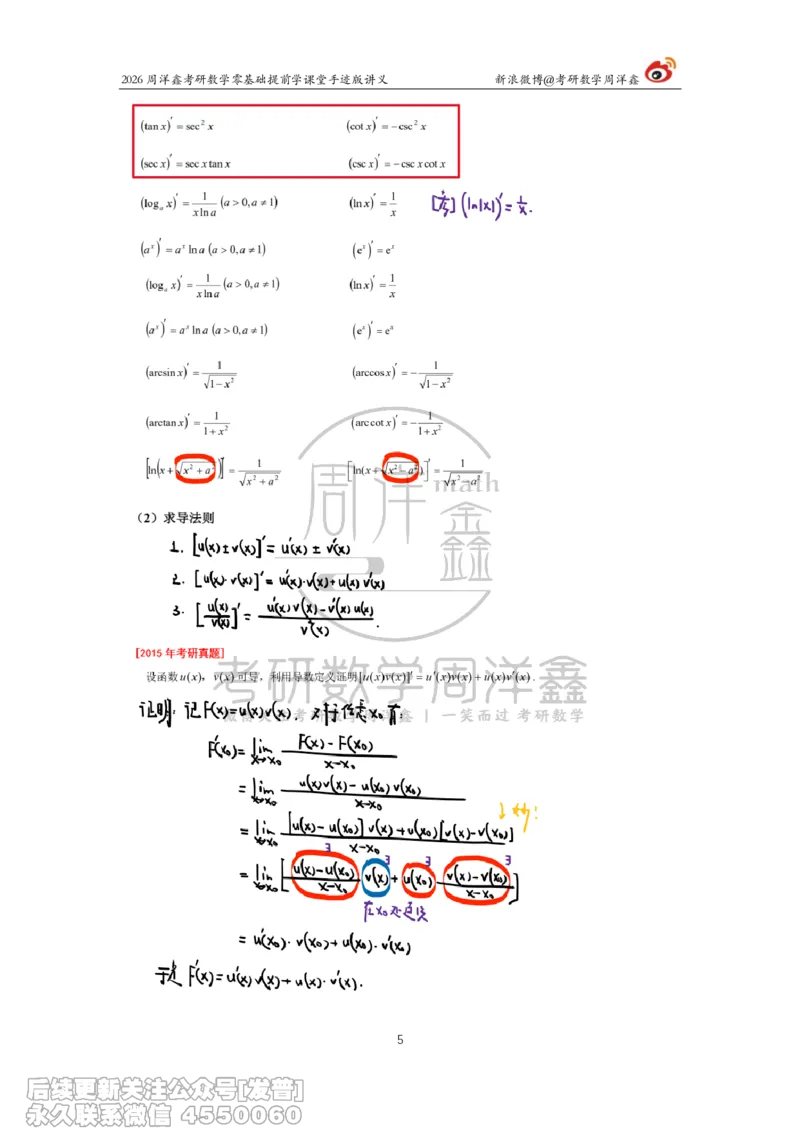 2026 周洋鑫考研数学零基础提前学课堂手迹版讲义 新浪微博@考研数学周洋鑫
(tan x)′ = sec² x (cot x)′ = −csc² x
(sec x)′ = sec x tan x (csc x)′ = −csc x cot x
(logₐ x)′ = 1/(x ln a) (a > 0, a ≠ 1) (ln x)′ = 1/x (ln|x|)′ = 1/x.
(aˣ)′ = aˣ ln a (a > 0, a ≠ 1) (eˣ)′ = eˣ
(logₐ x)′ = 1/(x ln a) (a > 0, a ≠ 1) (ln x)′ = 1/x
(aˣ)′ = aˣ ln a (a > 0, a ≠ 1) (eˣ)′ = eˣ
(arcsin x)′ = 1/√(1−x²) (arccos x)′ = −1/√(1−x²)
(arctan x)′ = 1/(1+x²) (arc cot x)′ = −1/(1+x²)
[ln(x+√(x²+a²))]′ = 1/√(x²+a²) [ln(x+√(x²−a²))]′ = 1/√(x²−a²)
周洋鑫 math
(2) 求导法则
1. [u(x)±v(x)]′ = u′(x) ± v′(x)
2. [u(x)·v(x)]′ = u′(x)·v(x)+u(x)v′(x)
3. [u(x)/v(x)]′ = (u′(x)v(x)−v′(x)u(x))/v²(x).
[2015 年考研真题]
设函数u(x), v(x)可导, 利用导数定义证明[u(x)v(x)]′ = u′(x)v(x)+u(x)v′(x).
考研数学周洋鑫
证明: 记F(x)=u(x)v(x), 对于任意x₀有:
一笑而过 考研数学
F′(x₀)= lim x→x₀ (F(x)−F(x₀))/(x−x₀)
= lim x→x₀ (u(x)v(x)−u(x₀)v(x₀))/(x−x₀)
= lim x→x₀ ([u(x)−u(x₀)]v(x)+u(x₀)[v(x)−v(x₀)])/(x−x₀)
= lim x→x₀ [(u(x)−u(x₀))/(x−x₀) v(x) + u(x₀) (v(x)−v(x₀))/(x−x₀)]
在x₀处连续
= u′(x₀)·v(x₀)+u(x₀)·v′(x₀)
于是 F′(x)=u′(x)v(x)+u(x)·v′(x).
5
后续更新关注公众号[发普]
永久联系微信 4550060